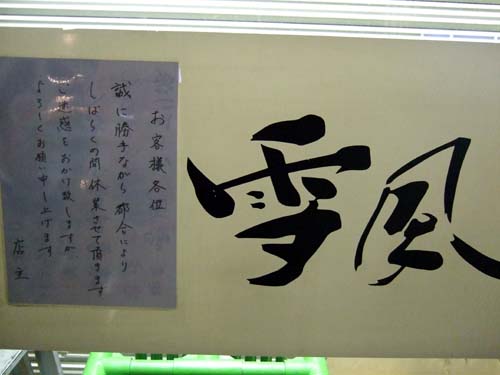 お客様各位
誠に勝手ながら都合により
しばらくの間休業させて頂きます
ご迷惑をおかけ致しますが
よろしくお願い申し上げます
店主
雪風